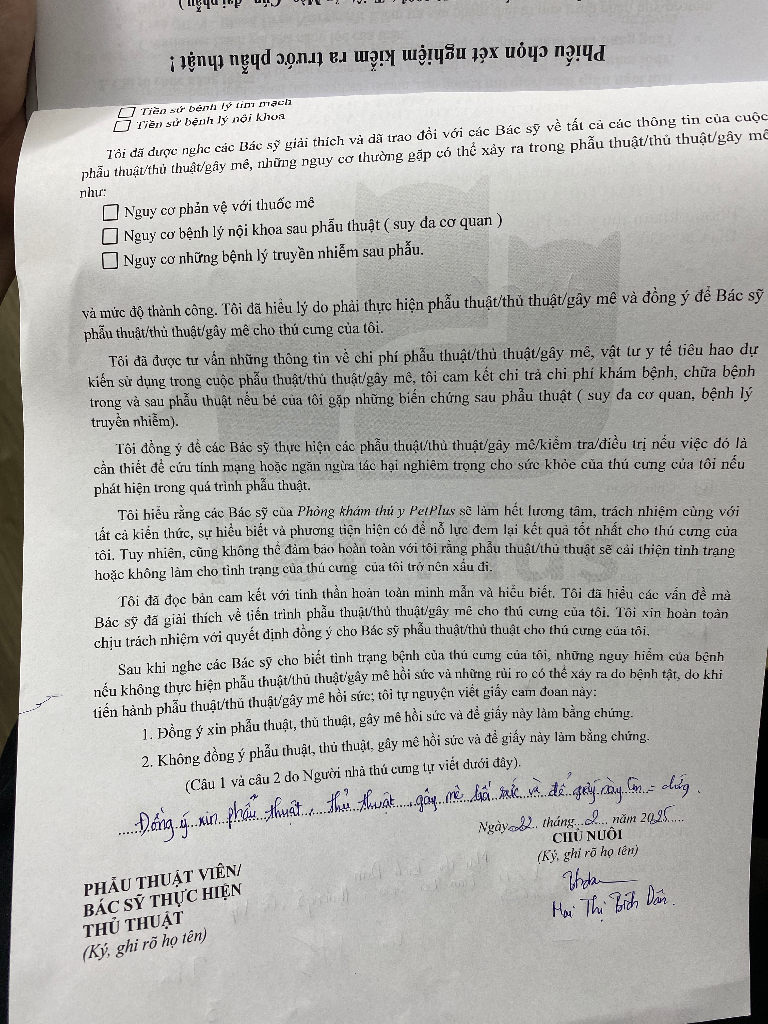 Phiếu chọn xét nghiệm kiểm ra trước phẫu thuật !
Tiền sử bệnh lý tim mạch
Tiền sử bệnh lý nội khoa
Tôi đã được nghe các Bác sỹ giải thích và đã trao đổi với các Bác sỹ về tất cả các thông tin của cuộc
phẫu thuật/thủ thuật/gây mê, những nguy cơ thường gặp có thể xảy ra trong phẫu thuật/thủ thuật/gây mê
như:
Nguy cơ phản vệ với thuốc mê
Nguy cơ bệnh lý nội khoa sau phẫu thuật ( suy đa cơ quan )
Nguy cơ những bệnh lý truyền nhiễm sau phẫu.
và mức độ thành công. Tôi đã hiểu lý do phải thực hiện phẫu thuật/thủ thuật/gây mê và đồng ý để Bác sỹ
phẫu thuật/thủ thuật/gây mê cho thú cưng của tôi.
Tôi đã được tư vấn những thông tin về chi phí phẫu thuật/thủ thuật/gây mê, vật tư y tế tiêu hao dự
kiến sử dụng trong cuộc phẫu thuật/thủ thuật/gây mê, tôi cam kết chi trả chi phí khám bệnh, chữa bệnh
trong và sau phẫu thuật nếu bé của tôi gặp những biến chứng sau phẫu thuật ( suy đa cơ quan, bệnh lý
truyền nhiễm).
Tôi đồng ý để các Bác sỹ thực hiện các phẫu thuật/thủ thuật/gây mê/kiểm tra/điều trị nếu việc đó là
cần thiết để cứu tính mạng hoặc ngăn ngừa tác hại nghiêm trọng cho sức khỏe của thú cưng của tôi nếu
phát hiện trong quá trình phẫu thuật.
Tôi hiểu rằng các Bác sỹ của Phòng khám thú y PetPlus sẽ làm hết lương tâm, trách nhiệm cùng với
tất cả kiến thức, sự hiểu biết và phương tiện hiện có để nỗ lực đem lại kết quả tốt nhất cho thú cưng của
tôi. Tuy nhiên, cũng không thể đảm bảo hoàn toàn với tôi rằng phẫu thuật/thủ thuật sẽ cải thiện tình trạng
hoặc không làm cho tình trạng của thú cưng của tôi trở nên xấu đi.
Tôi đã đọc bản cam kết với tinh thần hoàn toàn minh mẫn và hiểu biết. Tôi đã hiểu các vấn đề mà
Bác sỹ đã giải thích về tiến trình phẫu thuật/thủ thuật/gây mê cho thú cưng của tôi. Tôi xin hoàn toàn
chịu trách nhiệm với quyết định đồng ý cho Bác sỹ phẫu thuật/thủ thuật cho thú cưng của tôi.
Sau khi nghe các Bác sỹ cho biết tình trạng bệnh của thú cưng của tôi, những nguy hiểm của bệnh
nếu không thực hiện phẫu thuật/thủ thuật/gây mê hồi sức và những rủi ro có thể xảy ra do bệnh tật, do khi
tiến hành phẫu thuật/thủ thuật/gây mê hồi sức; tôi tự nguyện viết giấy cam đoan này:
1. Đồng ý xin phẫu thuật, thủ thuật, gây mê hồi sức và để giấy này làm bằng chứng.
2. Không đồng ý phẫu thuật, thủ thuật, gây mê hồi sức và để giấy này làm bằng chứng.
(Câu 1 và câu 2 do Người nhà thú cưng tự viết dưới đây).
Đồng ý xin phẫu thuật, thủ thuật, gây mê hồi sức và để giấy này làm = chứng.
Ngày 22 tháng 2 năm 2025
CHỦ NUÔI
(Ký, ghi rõ họ tên)
Mai Thị Bích Dân.
PHẪU THUẬT VIÊN/
BÁC SỸ THỰC HIỆN
THỦ THUẬT
(Ký, ghi rõ họ tên)